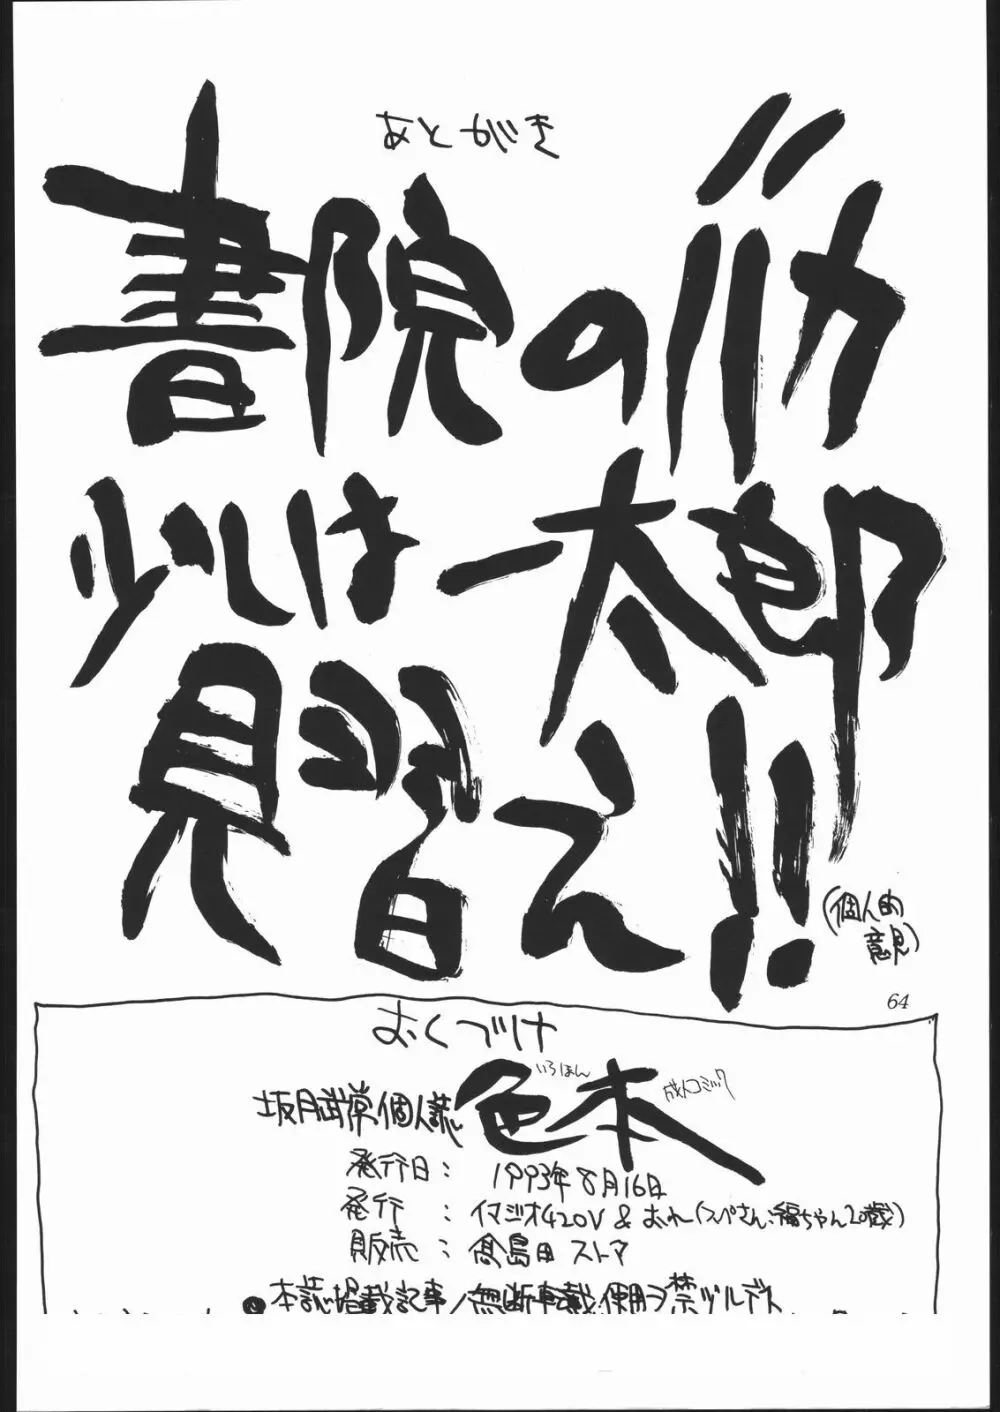 あとがき
書院のバカ
少しは一太郎
見習え!!
(個人的
意見)
64
おくづけ
いろほん
坂月武常個人誌 色本 成人コミック
発行日: 1993年8月16日
発行 : イマジオ420V & おれ(スペさん:福ちゃん20歳)
販売 : 髙島田 ストア
●本誌掲載記事ノ無断転載、使用ヲ禁ヅルデス